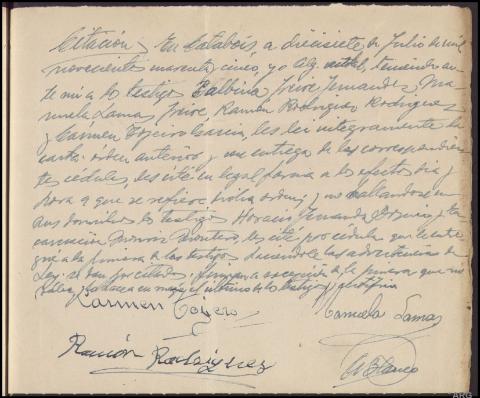 Citación, En Catabois, a diecisiete de Julio de mil
novecientos cuarenta y cinco, yo Alg. teniendo an-
te mi a los testigos Balbina Freire Fernandez, Ma-
nuela Lamas Freire, Ramón Rodriguez Rodriguez
y Carmen Tojeiro Garcia, les lei integramente la
carta orden anterior y con entrega de las correspondien-
tes cédulas, les cité en legal forma a los efectos dia y
hora a que se refiere dicha orden, y no hallandose en
sus domicilios los testigos Horacio Fernandez y En-
carnación les cité por cédula que le entre-
gue a la primera de las testigos, diciendole las advertencias de
Ley, se dan por citados, firman a excepción de la primera que no
sabe, el último de los testigos
Carmen Tojero
Manuela Lamas
Ramón Rodriguez
Blanco
ARG